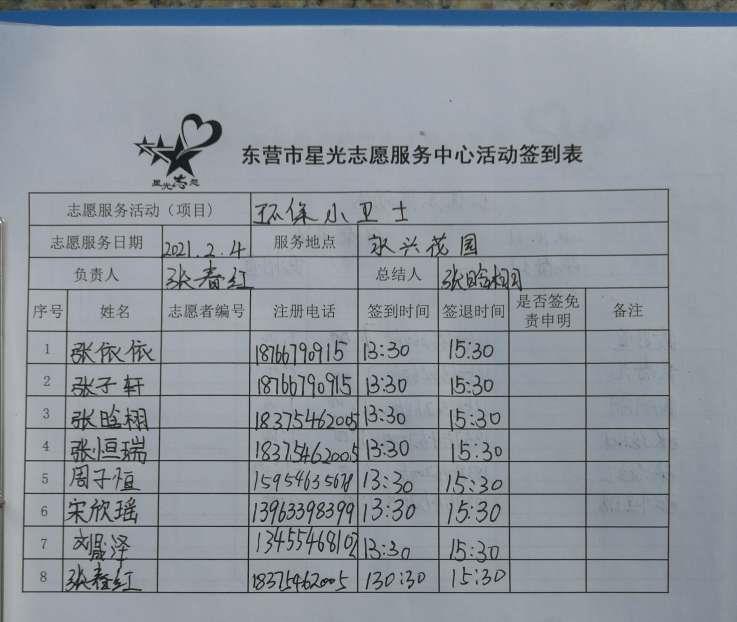 星光志愿
东营市星光志愿服务中心活动签到表
志愿服务活动（项目） 环保小卫士
志愿服务日期 2021.2.4 服务地点 永兴花园
负责人 张春红 总结人 张晗栩
序号 姓名 志愿者编号 注册电话 签到时间 签退时间 是否签免责申明 备注
1 张依依 18766790915 13:30 15:30
2 张子轩 18766790915 13:30 15:30
3 张晗栩 18375462005 13:30 15:30
4 张恒瑞 18375462005 13:30 15:30
5 周子恒 15954635678 13:30 15:30
6 宋欣瑶 13963398399 13:30 15:30
7 刘晟泽 13455468102 13:30 15:30
8 张春红 18375462005 130:30 15:30